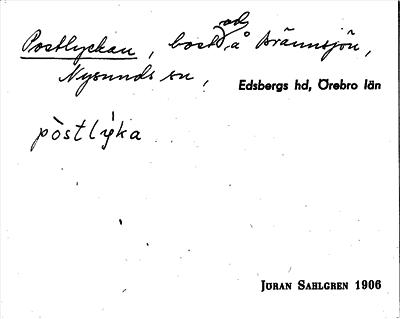 Postlyckan, bost. å Brännsjön,
Nysunds sn,
Edsbergs hd, Örebro län
pòstlýka
JÖRAN SAHLGREN 1906